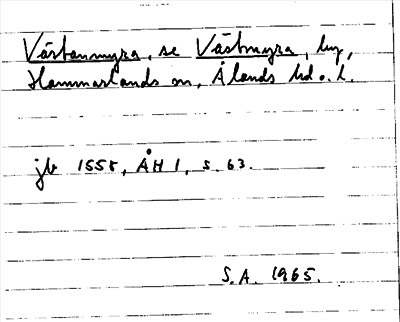 Västanmyra, se Västmyra, by,
Hammarlands sn, Ålands hd o. l.
jb 1555, ÅH 1, s. 63.
S.A. 1965.